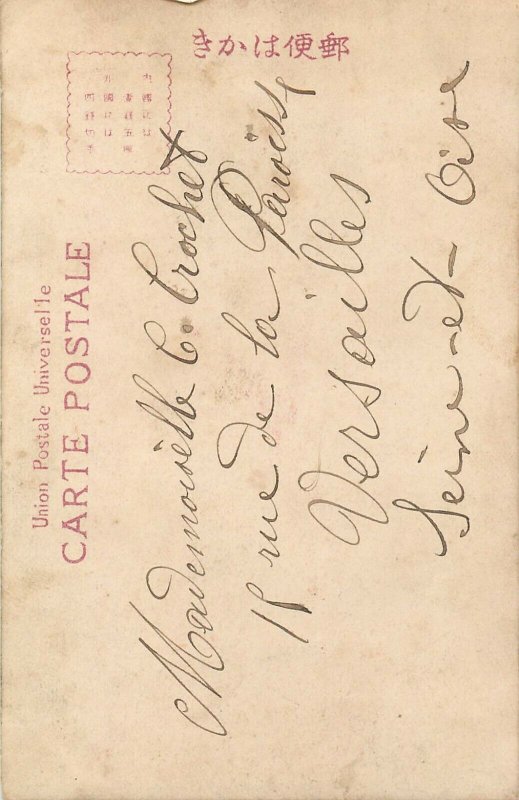 郵便はかき
内國には
壹錢五厘
外國には
四錢切手
Union Postale Universelle
CARTE POSTALE
Mademoiselle C. Crochet
18 rue de la Paroisse
Versailles
Seine-et-Oise